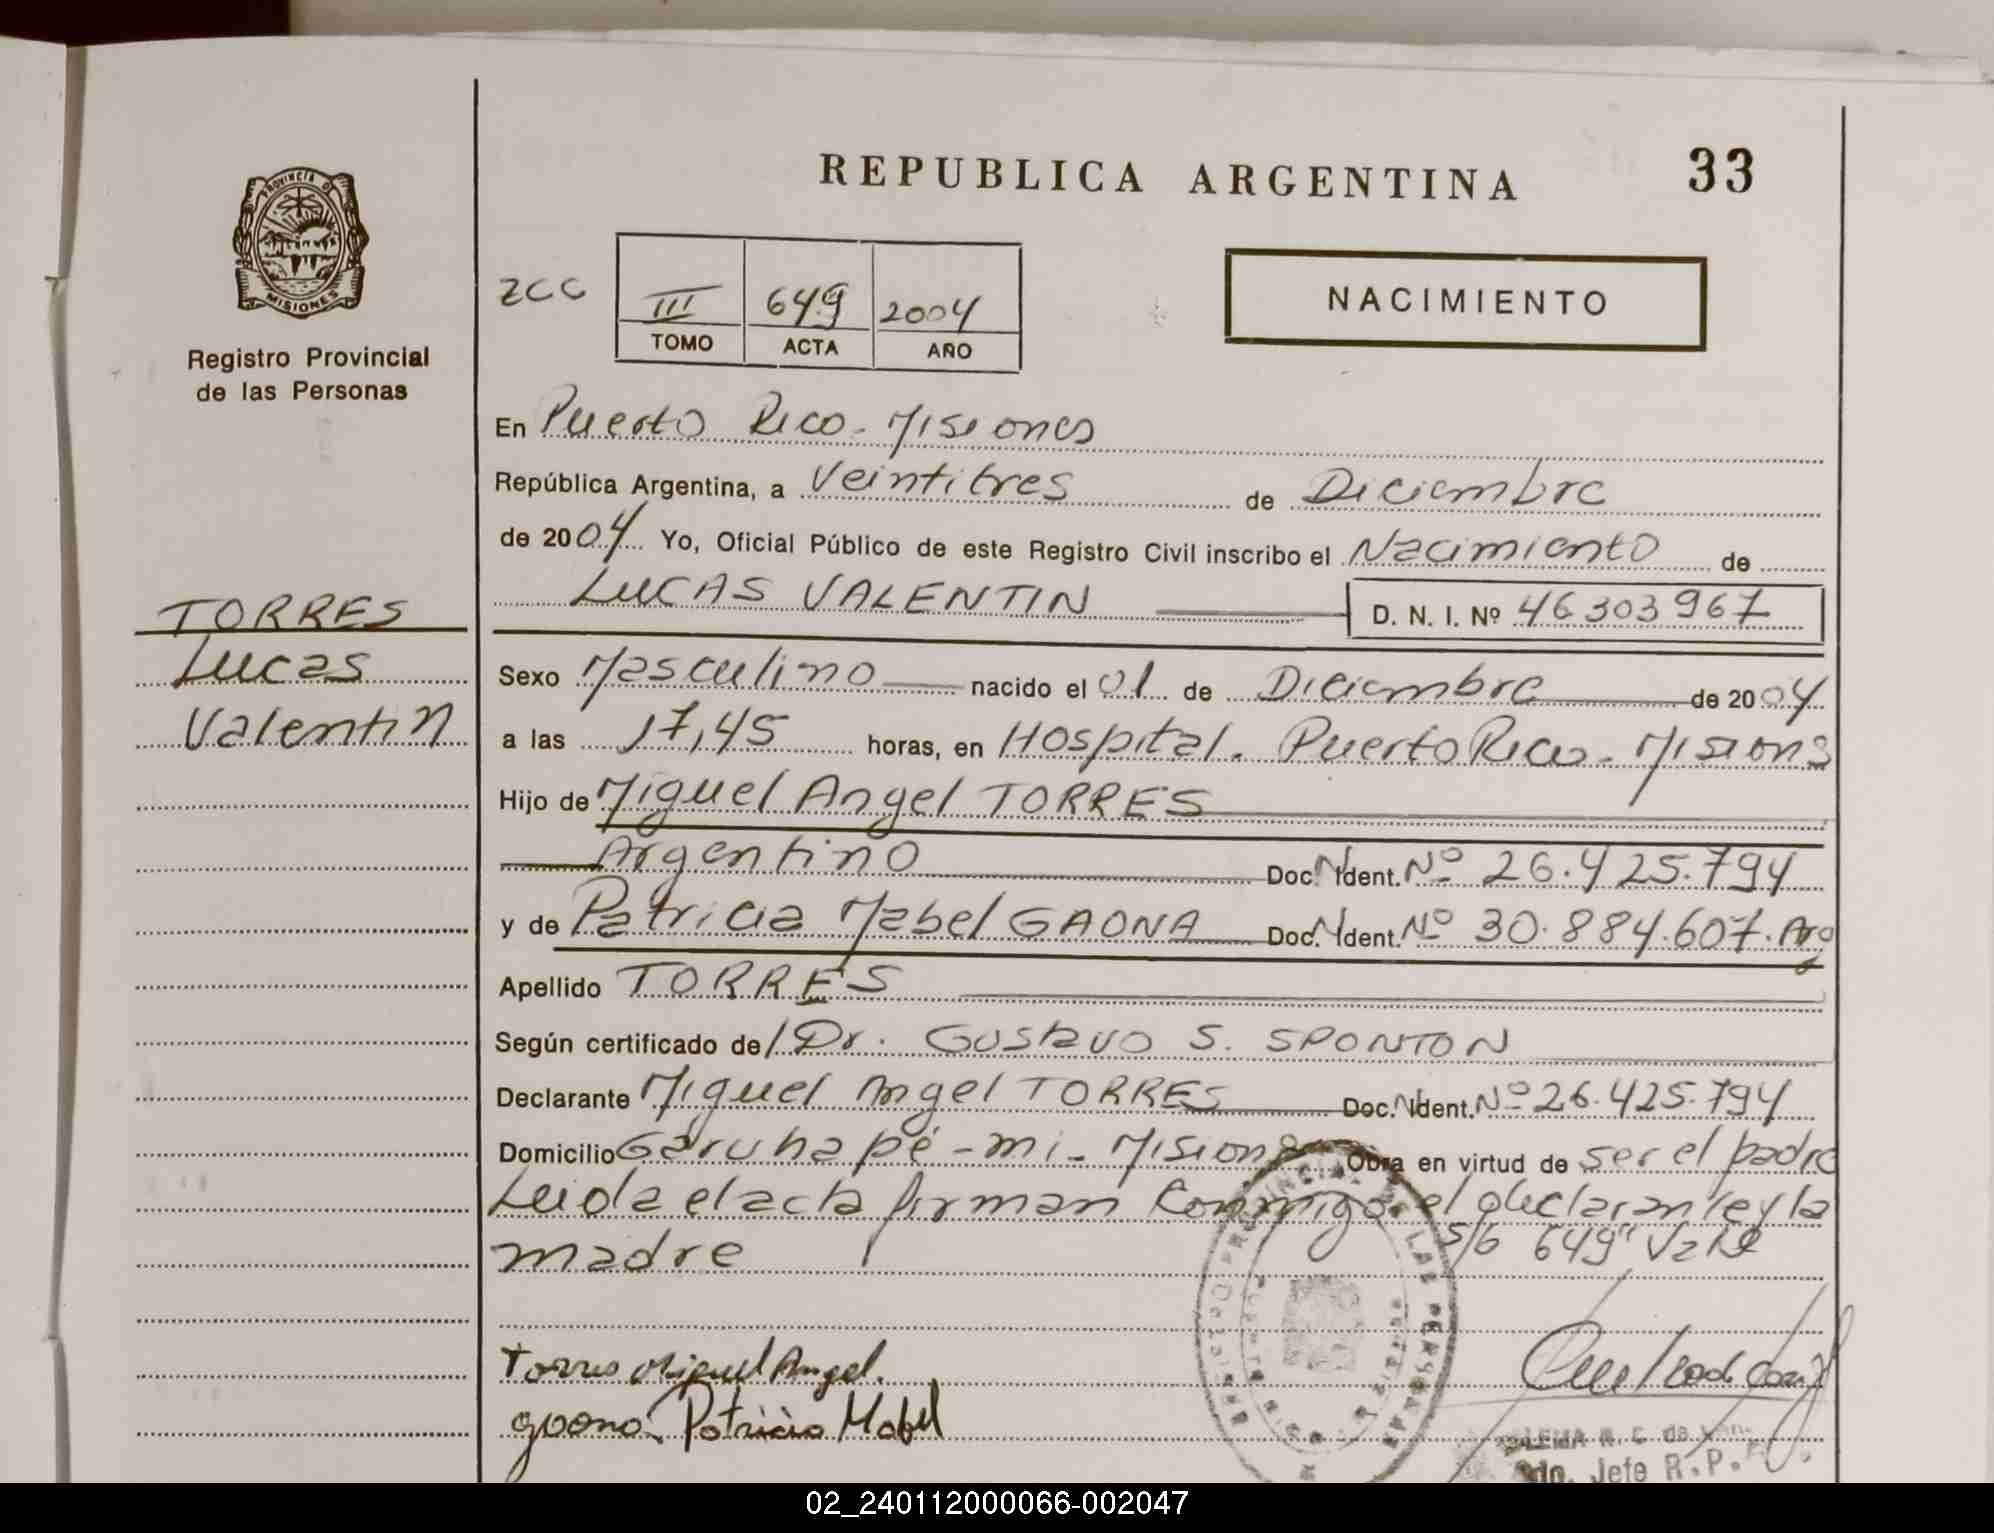 REPUBLICA ARGENTINA 33
PROVINCIA D
MISIONES
Registro Provincial
de las Personas
ZCC
III 649 2004
TOMO ACTA AÑO
NACIMIENTO
En Puerto Rico - Misiones
República Argentina, a Veintitres de Diciembre
de 2004 Yo, Oficial Público de este Registro Civil inscribo el Nacimiento de
LUCAS VALENTIN D. N. I. Nº 46303967
TORRES
Lucas
Valentin
Sexo Masculino nacido el 01 de Diciembre de 2004
a las 17,45 horas, en Hospital. Puerto Rico - Misions
Hijo de Miguel Angel TORRES
Argentino Doc. N Ident. Nº 26.425.794
y de Patricia Mabel GAONA Doc. N Ident. Nº 30.884.607. Arg
Apellido TORRES
Según certificado de/ Dr. Gustavo S. SPONTON
Declarante Miguel Angel TORRES Doc. N Ident. Nº 26.425.794
Domicilio Garuhapé - mi - Misions Obra en virtud de ser el padre
Leida el acta firman Conmigo el declarante y la
madre S/b 649" Vale
Torres Miguel Angel.
gaona. Patricia Mabel
R. C. de
Jefe R.P.
02_240112000066-002047